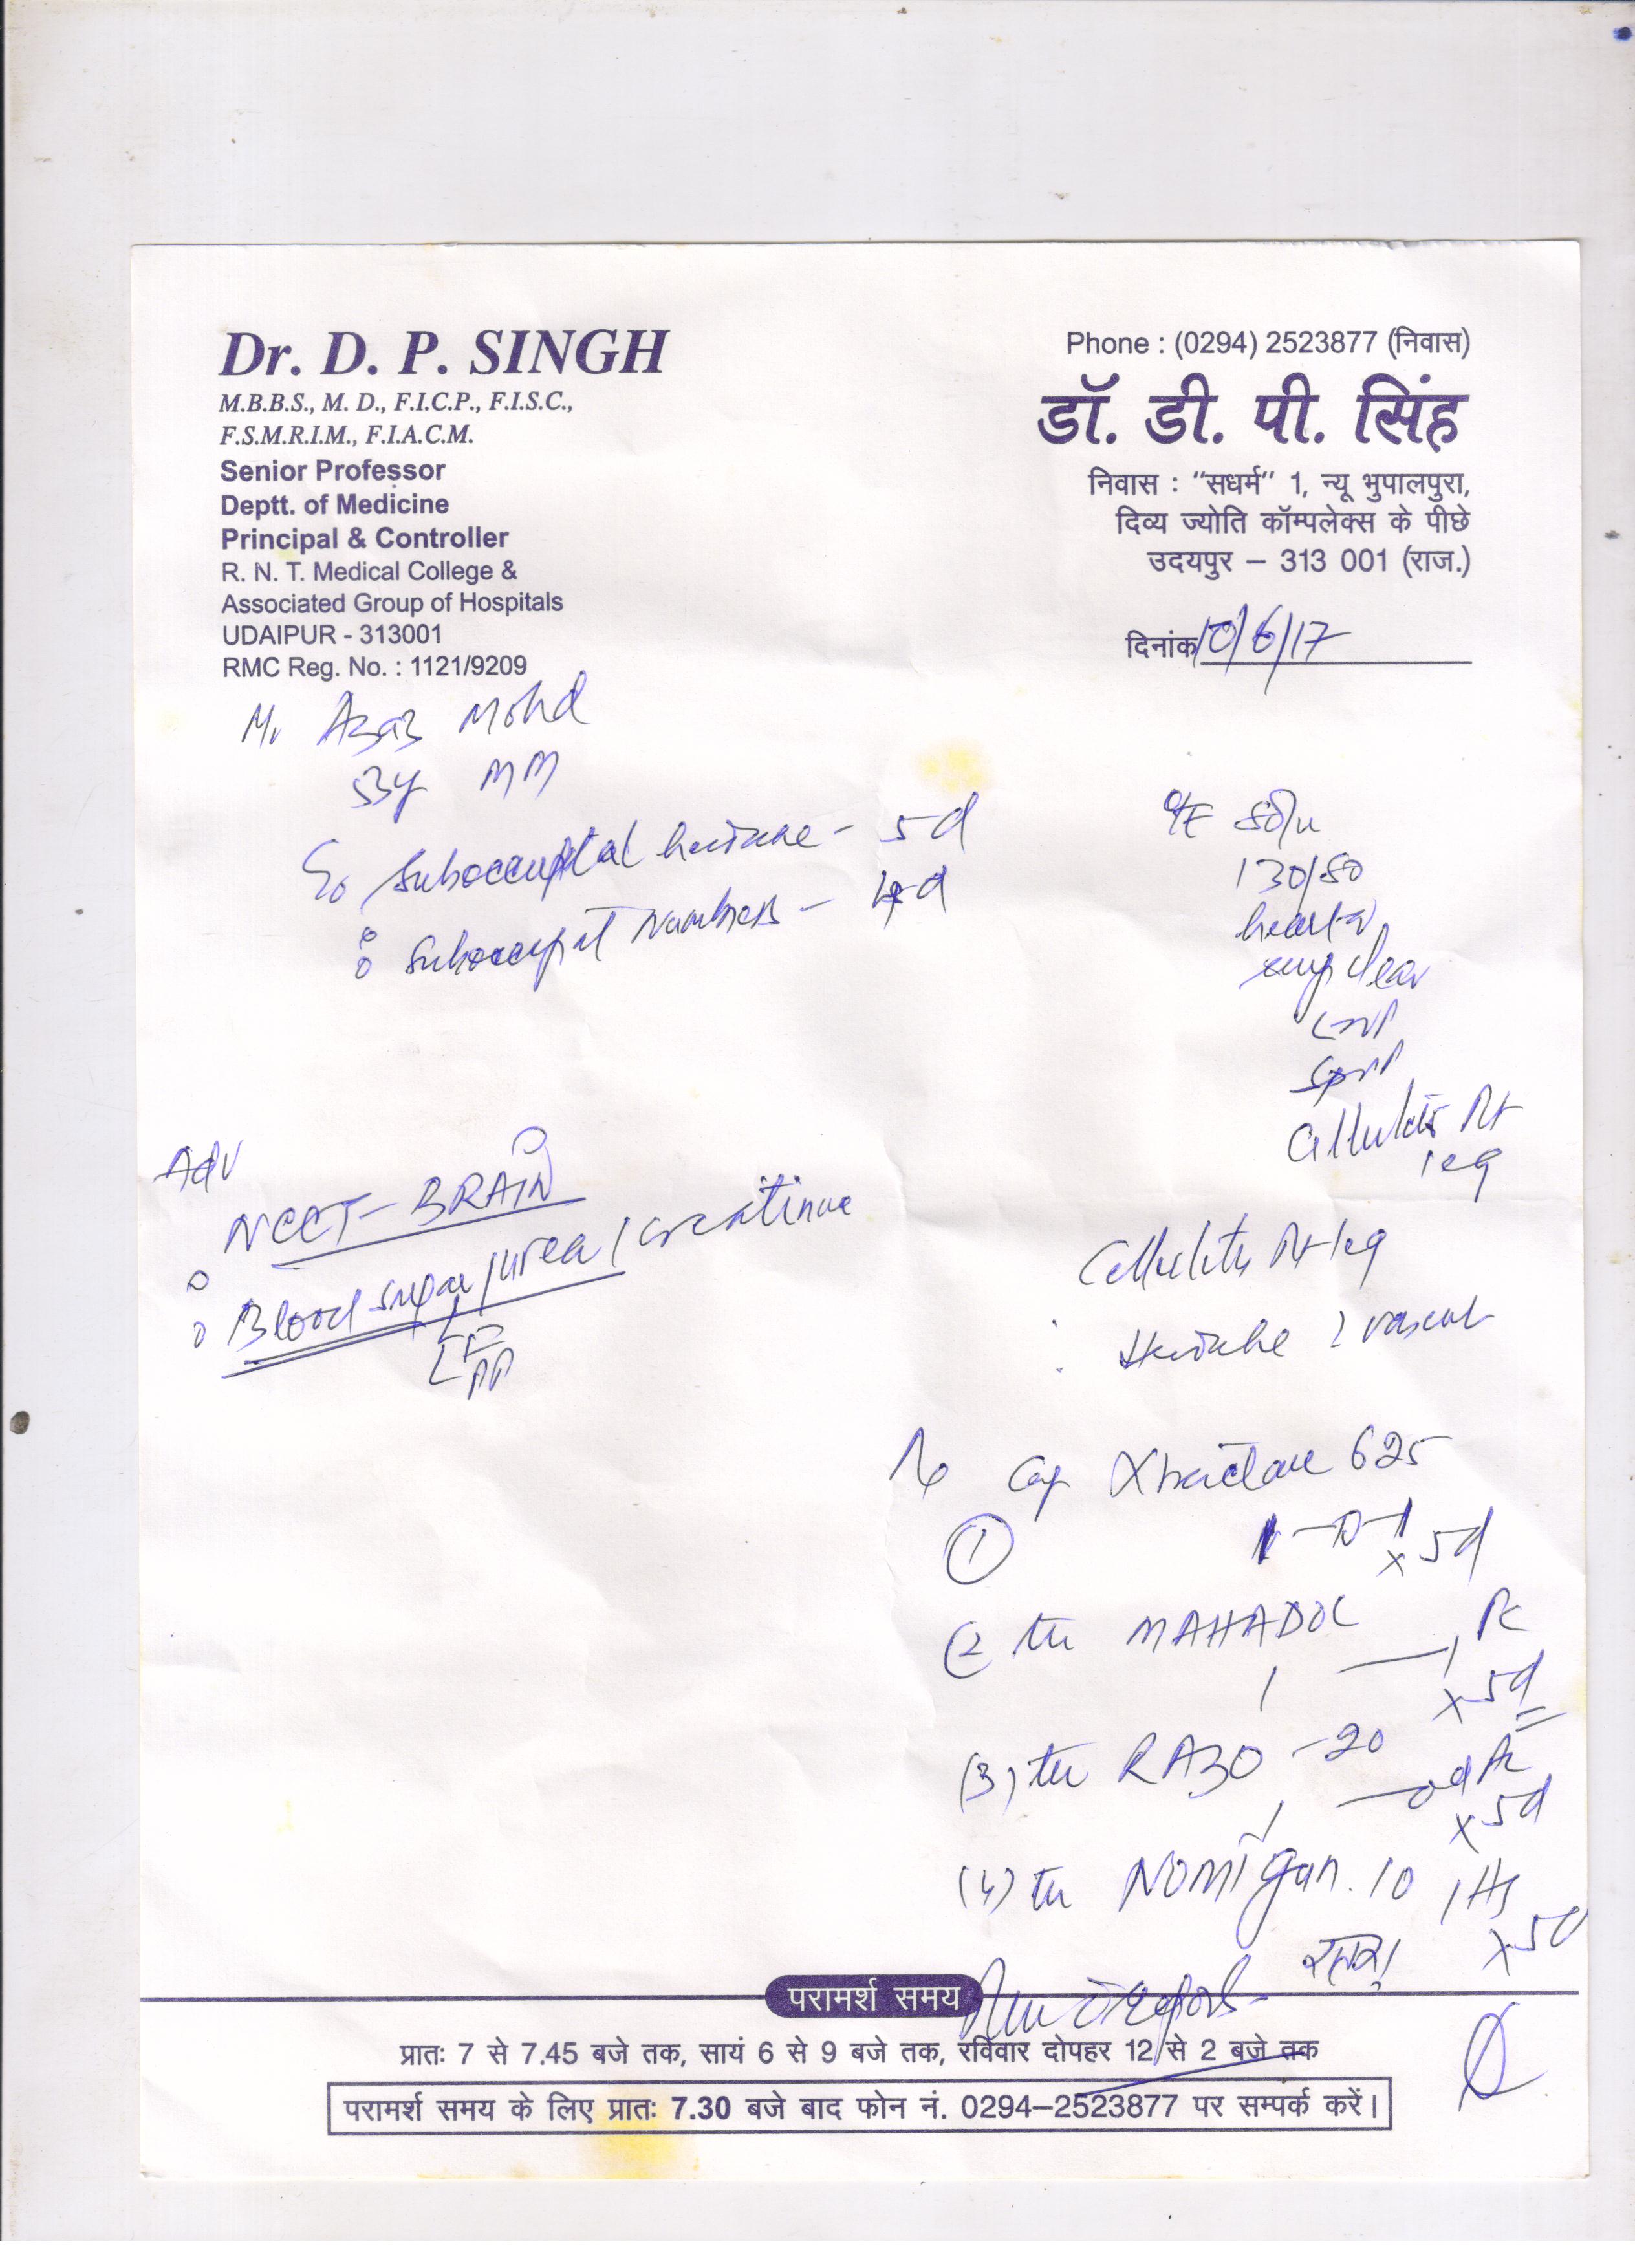 Dr. D. P. SINGH
M.B.B.S., M. D., F.I.C.P., F.I.S.C.,
F.S.M.R.I.M., F.I.A.C.M.
Senior Professor
Deptt. of Medicine
Principal & Controller
R. N. T. Medical College &
Associated Group of Hospitals
UDAIPUR - 313001
RMC Reg. No. : 1121/9209
Phone : (0294) 2523877 (निवास)
डॉ. डी. पी. सिंह
निवास : “सधर्म” 1, न्यू भुपालपुरा,
दिव्य ज्योति कॉम्पलेक्स के पीछे
उदयपुर – 313 001 (राज.)
दिनांक 10/6/17
Mr Azaz Mohd
53y
suboccipital - 5d
suboccipit Numbness - 4d
O/E 80/m
130/80
heart
clear
Cellulitis Rt
leg
Adv
NCCT - BRAIN
Blood sugar / urea / creatinine
F
PP
Cellulitis Rt leg
? vascul
Cap 625
① 1 - 0 - 1
x 5d
(2 MAHADOL
1 — 1 PC
x 5d
(3) RAZO - 20
1 — od AC
x 5d
(4) NOMIGAN. 10 1 HS
x 5d
परामर्श समय
प्रातः 7 से 7.45 बजे तक, सायं 6 से 9 बजे तक, रविवार दोपहर 12 से 2 बजे तक
परामर्श समय के लिए प्रातः 7.30 बजे बाद फोन नं. 0294–2523877 पर सम्पर्क करें।